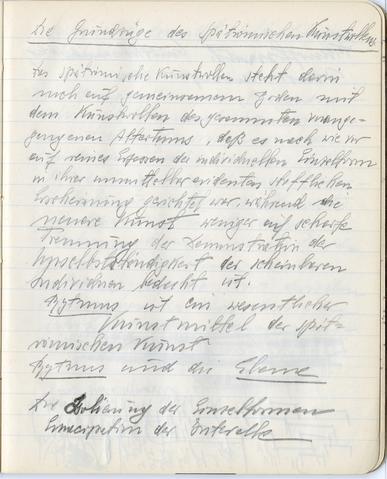 Die Grundzüge des spätrömischen Kunstwollens
Das spätrömische Kunstwollen steht darin
noch auf gemeinsamem Boden mit
dem Kunstwollen des gesammten vorange-
gangenen Altertums, daß es nach wie vor
auf reines Erfassen der individuellen Einzelform
in ihrer unmittelbar evidenten stofflichen
Erscheinung gerichtet war, während die
neuere Kunst weniger auf scharfe
Trennung der Demonstration der
Unselbstständigkeit der scheinbaren
Individuen bedacht ist.
Rytmus ist ein wesentlicher
Kunstmittel der spät-
römischen Kunst
Rytmus und die Ebene
Die Isolierung der Einzelformen
Emancipation der Intervalle